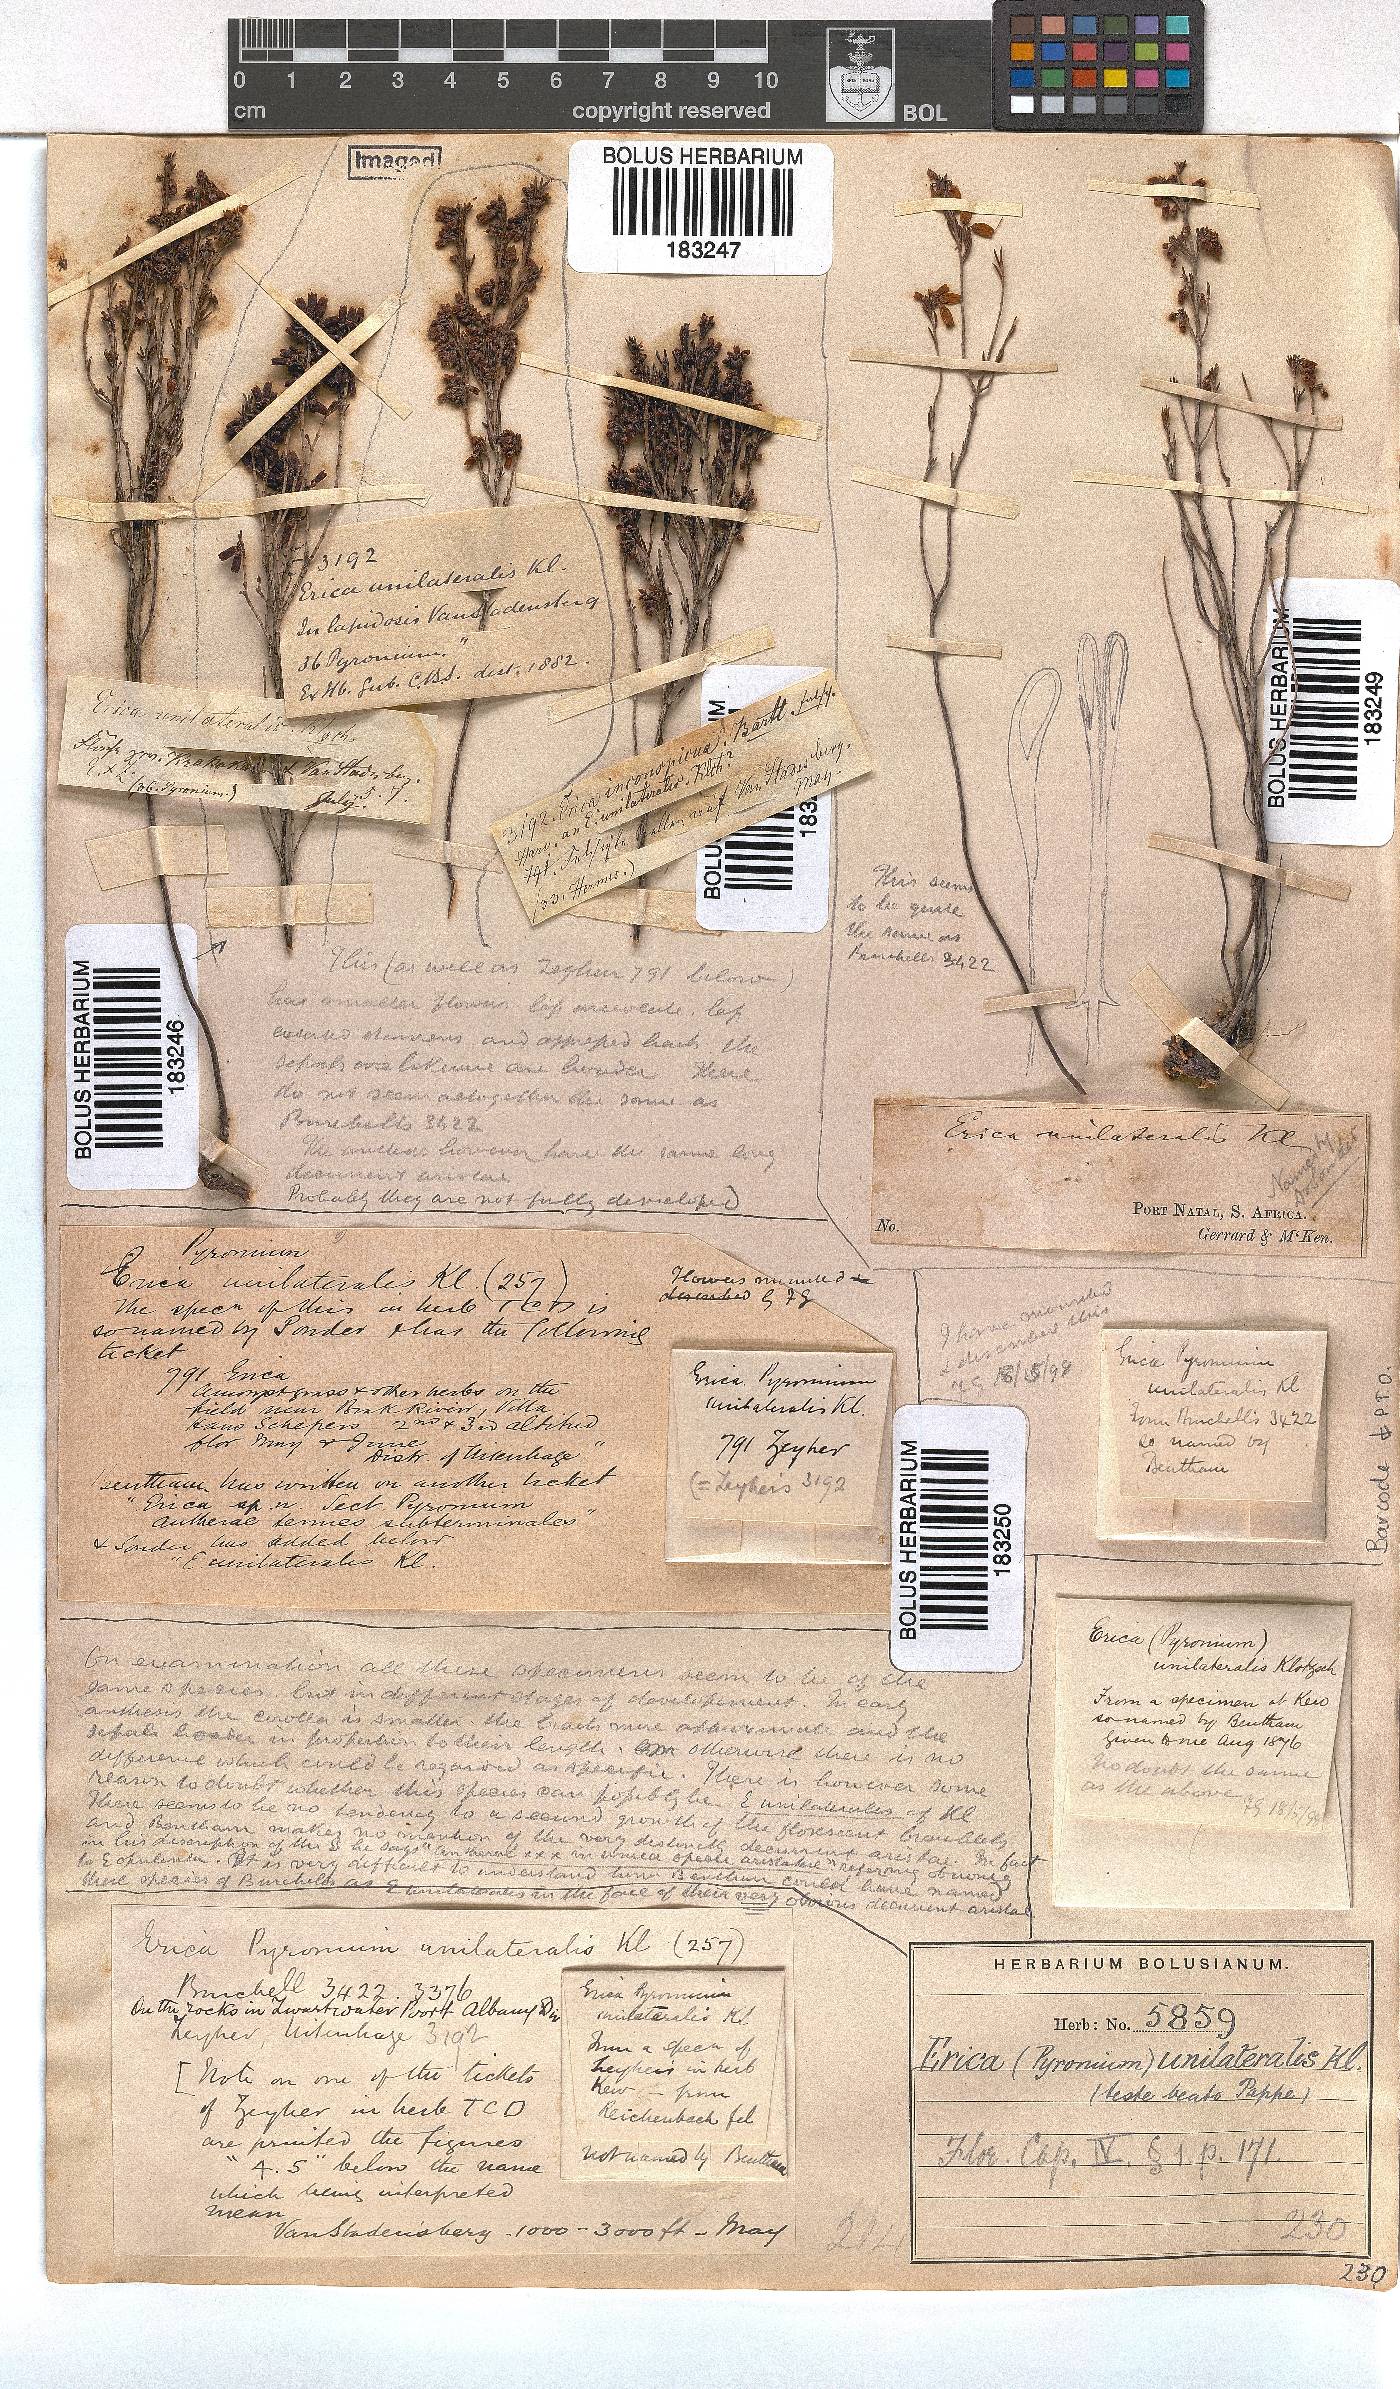 0 1 2 3 4 5 6 7 8 9 10
cm
copyright reserved
BOL
Imaged
BOLUS HERBARIUM
183247
3192
Erica unilateralis Kl.
In lapidosis VanStadensberg
36 Pyronium."
Ex Hb. Gub. C.B.S. dist. 1882.
Erica unilateralis Klotzsch.
VanStadesberg.
E. & Z. (36. Pyronium.)
July
3192 Erica inconspicua? Bartl.
an E. unilateralis. Kltz?
VanStadesberg.
May.
BOLUS HERBARIUM
183
BOLUS HERBARIUM
183249
BOLUS HERBARIUM
183246
This seems
to be quite
the same as
Burchell's 3422
This (as well as Zeyher 791 below)
has smaller flowers
and appressed bracts the
sepals are likewise are broader These
do not seem altogether the same as
Burchells 3422
The anthers however have the same long
decurrent aristae
Probably they are not fully developed)
Erica unilateralis Kl
Named by
PORT NATAL, S. AFRICA.
No.
Gerrard & McKen.
Pyronium
Erica unilateralis Kl. (257)
The specn of this in herb TCD is
so named by Sonder & has the following
ticket
791 Erica
Amongst grass & other herbs on the
field near Brak River, Villa
Hans Schepers 2nd & 3rd altitud
flor May & June
Distr. of Uitenhage"
Bentham has written on another ticket
"Erica sp. n. Sect Pyronium
antherae tenues subterminales"
& Sonder has added below
"E unilateralis Kl.
Flowers mounted &
described by FG
Erica Pyronium
unilateralis Kl.
791 Zeyher
(= Zeyher's 3192
BOLUS HERBARIUM
183250
I have mounted
& described this
18/5/98
Erica Pyronium
unilateralis Kl
From Burchell's 3422
so named by
Bentham
Barcode & PTO
Erica (Pyronium)
unilateralis Klotzsch
From a specimen at Kew
so named by Bentham
given to me Aug 1876
No doubt the same
as the above
On examination all these specimens seem to be of the
same species but in different stages of developement. In early
anthesis the corolla is smaller the bracts more approximate and the
sepals broader in proportion to their length. otherwise there is no
difference which could be regarded as specific. There is however some
reason to doubt whether this species can possibly be E unilateralis of Kl
There seems to be no tendency to a second growth of the florescent branchlets
and Bentham makes no mention of the very distinctly decurrent aristae. In fact
in his description of this S he says "antherae xxx in unica specie aristatae" referring obviously
to E opulenta. It is very difficult to understand how Bentham could have named
these species of Burchells as E unilateralis in the face of their very obvious decurrent aristae
Erica Pyronium unilateralis Kl (257)
Burchell 3422. 3376
On the rocks in Zwartwater Poort Albany Div
Zeyher, Uitenhage 3192
[Note on one of the tickets
of Zeyher in herb TCD
are printed the figures
"4. 5" below the name
which being interpreted
mean
VanStadensberg - 1000 - 3000 ft - May
Erica Pyronium
unilateralis Kl.
From a specn of
Zeyher's in herb
Kew - from
Reichenbach fil
Not named by Bentham
HERBARIUM BOLUSIANUM.
Herb: No. 5859
Erica (Pyronium) unilateralis Kl.
(teste beato Pappe)
Flor. Cap. IV. § 1. p. 171.
230
230